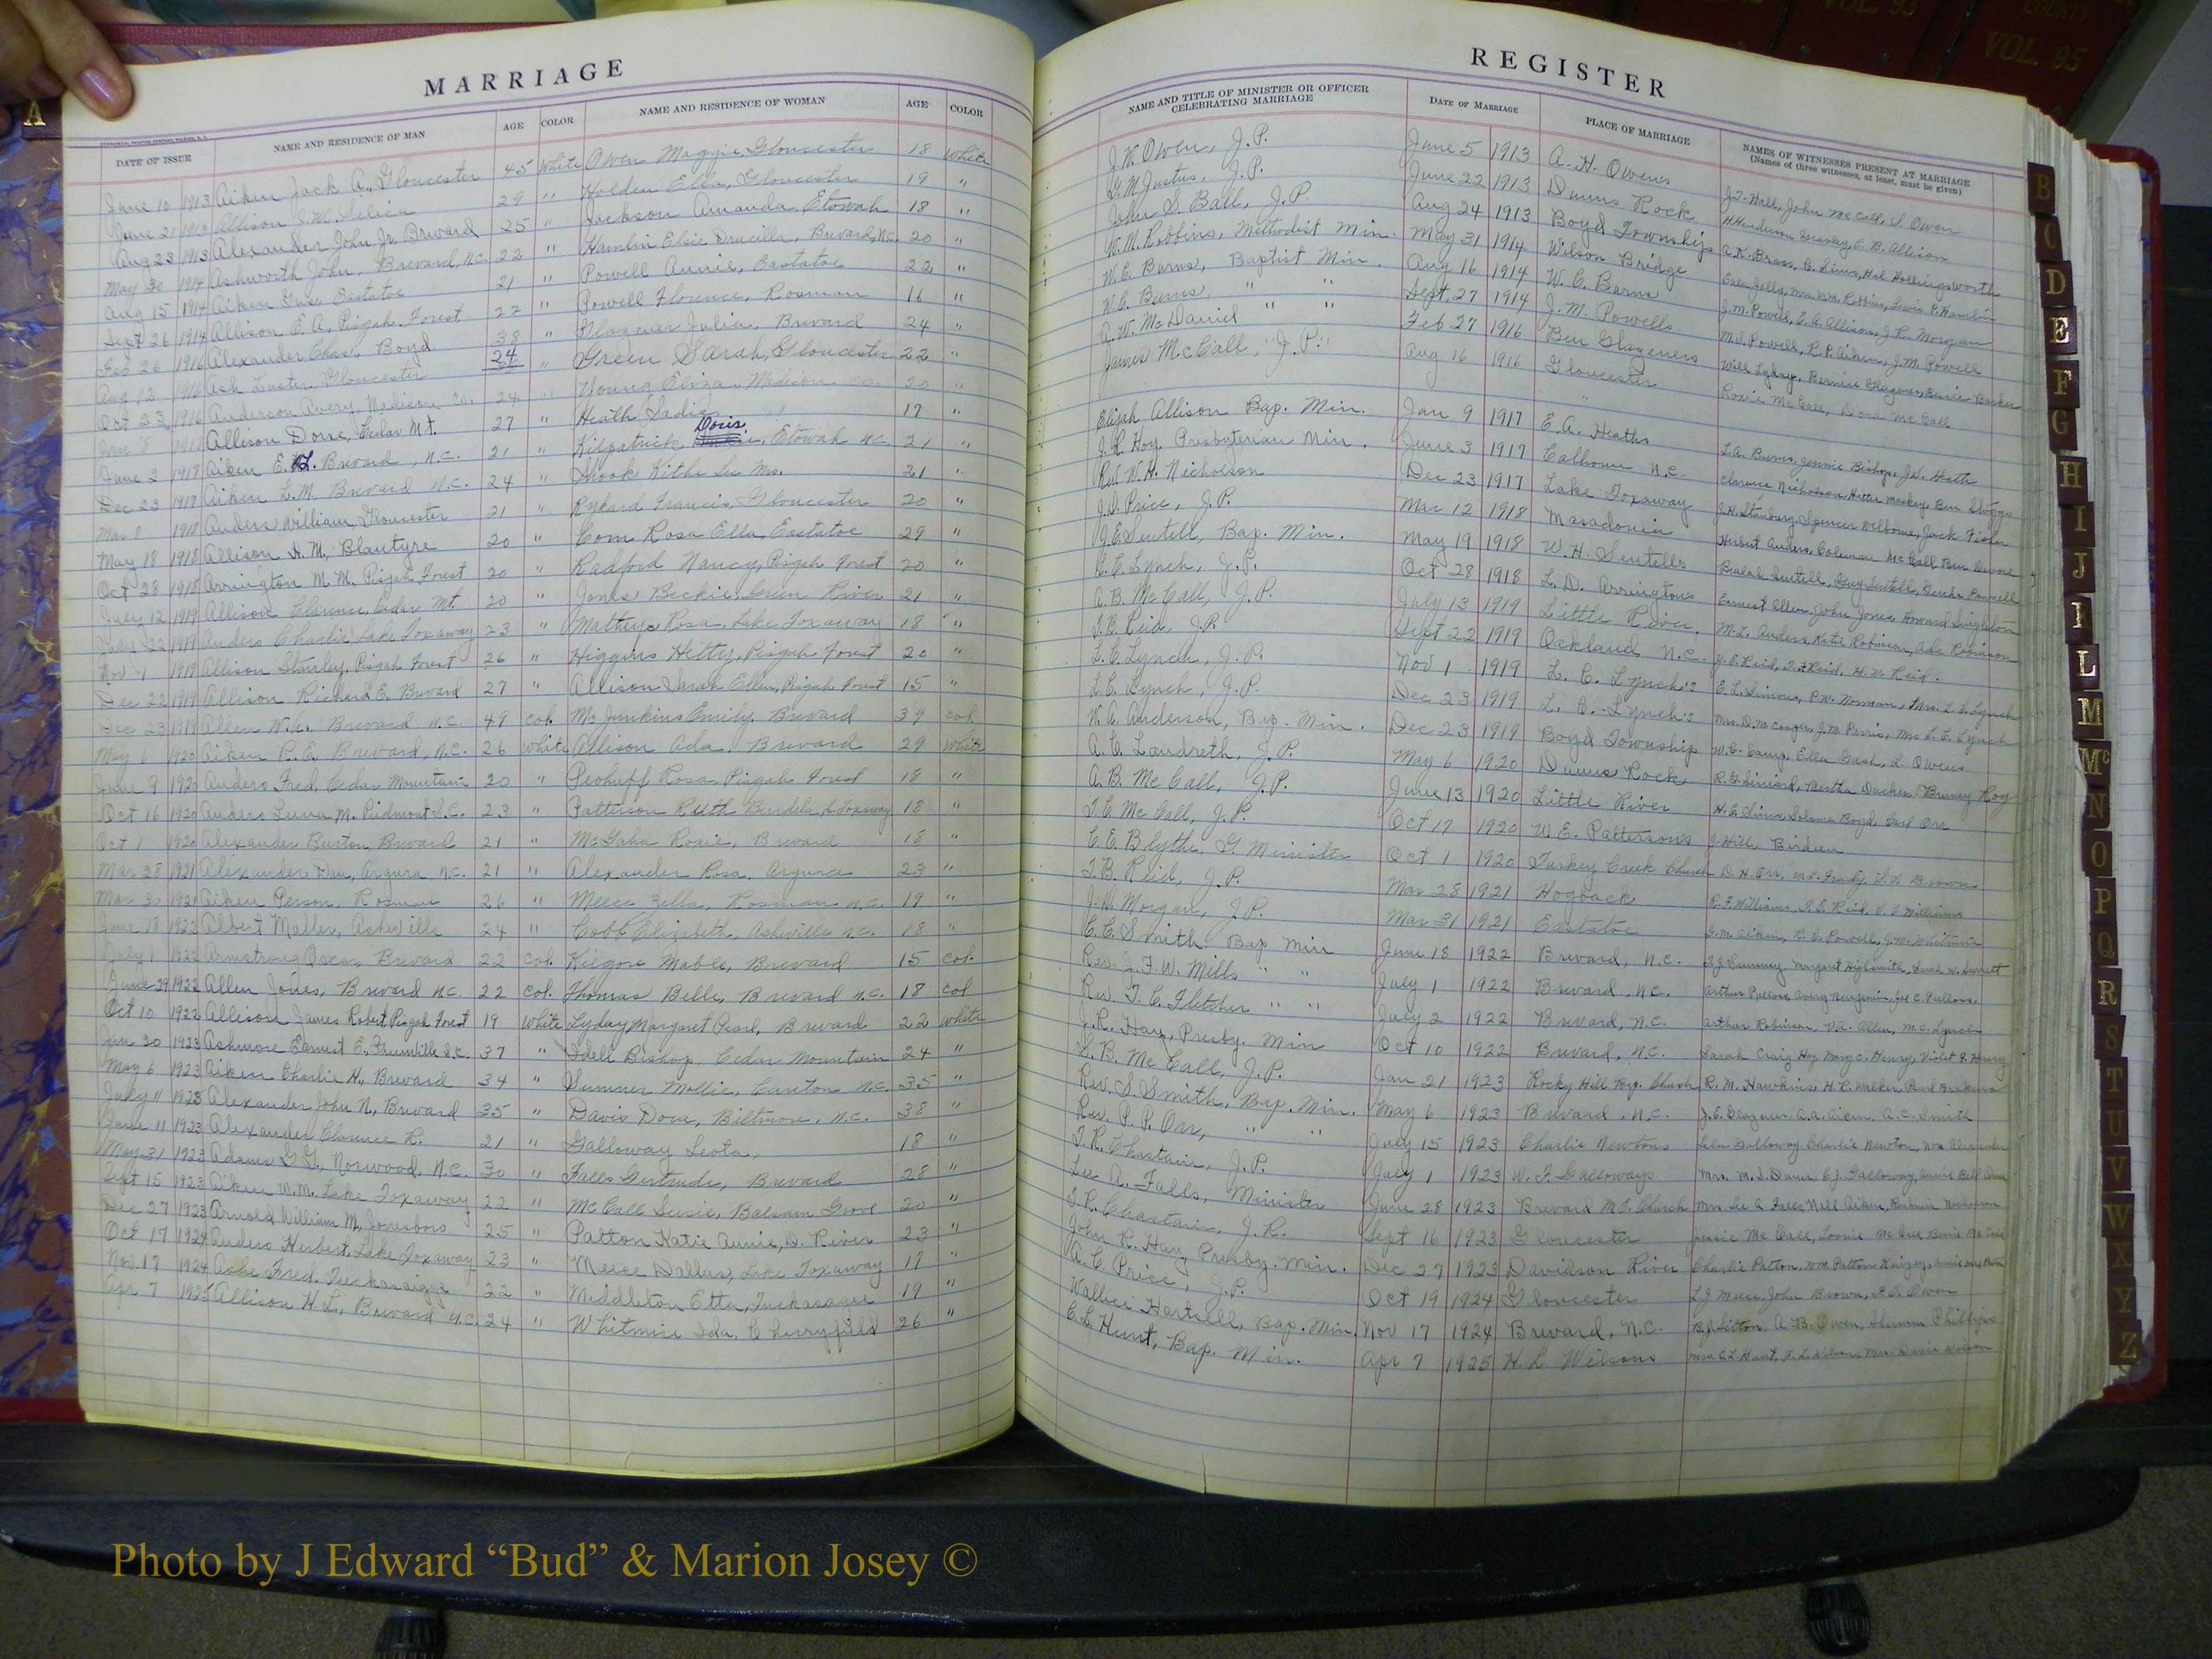 VOL. 93
COUNTY
VOL. 95
MARRIAGE
DATE OF ISSUE NAME AND RESIDENCE OF MAN AGE COLOR NAME AND RESIDENCE OF WOMAN AGE COLOR
June 10 1913 Aiken Jack A., Gloucester 45 White Owen Maggie, Gloucester 18 White
June 21 1913 Allison J.W. Silica 29 " Holden Ella, Gloucester 19 "
Aug 23 1913 Alexander John Jr. Brevard 25 " Jackson Amanda Etowah 18 "
May 30 1914 Ashworth John, Brevard, N.C. 22 " Hamlin Elsie Drucilla, Brevard, N.C. 20 "
Aug 15 1914 Aiken Gus, Eastatoe 21 " Powell Annie, Eastatoe 22 "
Sept 26 1914 Allison E.A. Pisgah Forest 22 " Powell Florence, Rosman 16 "
Feb 26 1916 Alexander Chas. Boyd 38 " Glazener Julia, Brevard 24 "
Aug 12 1916 Ash Luster, Gloucester 24 " Green Sarah, Gloucester 22 "
Oct 23 1916 Anderson Avery, Madison Co. 24 " Young Eliza, Madison Co. 20 "
1917 Allison Dorse, Cedar Mt. 27 " Heath Sadie 17 "
June 2 1917 Aiken E. Brevard, N.C. 21 " Kilpatrick Doris, Etowah N.C. 21 "
Dec 23 1917 Aiken L.M. Brevard N.C. 24 " Shook Kithe Lee Mrs. 21 "
Mar 8 1918 Anders William, Gloucester 21 " Rykard Francis, Gloucester 20 "
May 18 1918 Allison H.M. Blantyre 20 " Com Rosa Ella, Eastatoe 29 "
Oct 28 1918 Arrington M.M. Pisgah Forest 20 " Radford Nancy, Pisgah Forest 20 "
July 12 1919 Allison Clarence, Cedar Mt. 20 " Jones Beckie, Green River 21 "
1919 Anders Charlie, Lake Toxaway 23 " Rosa, Lake Toxaway 18 "
Nov 1 1919 Allison Stanley, Pisgah Forest 26 " Higgins Hitty, Pisgah Forest 20 "
Dec 22 1919 Allison Richard E. Brevard 27 " Allison Sarah Ellen, Pisgah Forest 15 "
Dec 23 1919 Allen W.A. Brevard N.C. 49 col. McJunkins Emily, Brevard 39 col.
May 6 1920 Aiken R.E. Brevard, N.C. 26 White Allison Ada, Brevard 29 White
June 9 1920 Anders Fred, Cedar Mountain 20 " Rosa, Pisgah Forest 18 "
Oct 16 1920 Anders Luna M. Piedmont S.C. 23 " Patterson Ruth, L. Toxaway 18 "
Oct 1 1920 Alexander Burton, Brevard 21 " McGaha Roxie, Brevard 18 "
Mar 28 1921 Alexander Dan, Argura, N.C. 21 " Alexander Rosa, Argura 23 "
Mar 30 1921 Aiken Person, Rosman 26 " Meece Zella, Rosman N.C. 19 "
June 18 1922 Albert Asheville 24 " Cobb Elizabeth, Asheville N.C. 18 "
July 1 1922 Armstrong Oscar, Brevard 22 col. Kilgore Mable, Brevard 15 col.
June 29 1922 Allen Jones, Brevard N.C. 22 col. Thomas Belle, Brevard N.C. 18 col
Oct 10 1922 Allison James Robert Pisgah Forest 19 White Lyday Margaret Pearl, Brevard 22 White
Jan 20 1923 Ashmore Earnest E. Greenville S.C. 37 " Idell Bishop, Cedar Mountain 24 "
May 6 1923 Aiken Charlie H., Brevard 34 " Sumner Mollie, Canton N.C. 35 "
July 11 1923 Alexander John N., Brevard 35 " Davis Dove, Biltmore, N.C. 38 "
June 11 1923 Alexander Clarence R. 21 " Galloway Leota, 18 "
May 31 1923 Adams G.G., Norwood, N.C. 30 " Falls Gertrude, Brevard 28 "
Sept 15 1923 Aiken W.M. Lake Toxaway 22 " McCall Susie, Balsam Grove 20 "
Dec 27 1923 Arnold William M., Jonesboro 25 " Patton Katie Annie, D. River 23 "
Oct 17 1924 Anders Herbert, Lake Toxaway 23 " Meece Dallas, Lake Toxaway 17 "
Nov 17 1924 Ashe Fred, Tuckasaigie 22 " Middleton Etta, Tuckasaigie 19 "
Apr 7 1925 Allison H.L., Brevard N.C. 24 " Whitmire Ida, Cherryfield 26 "
REGISTER
NAME AND TITLE OF MINISTER OR OFFICER CELEBRATING MARRIAGE DATE OF MARRIAGE PLACE OF MARRIAGE NAMES OF WITNESSES PRESENT AT MARRIAGE
(Names of three witnesses, at least, must be given)
J.W. Owen, J.P. June 5 1913 A.H. Owens J.T. Hall, John McCall, Owen
G.M. Justus, J.P. June 22 1913 Dunns Rock C.B. Allison
John S. Ball, J.P. Aug 24 1913 Boyd Township A.K. Brass, Hollingsworth
W.M. Robbins, Methodist Min. May 31 1914 Wilson Bridge Lewis P. Hamlin
W.C. Burns, Baptist Min. Aug 16 1914 W.C. Barns J.M. Powell, E.A. Allison, J.R. Morgan
W.C. Burns, " " Sept. 27 1914 J.M. Powells M.J. Powell, R.P. Aiken, J.M. Powell
A.W. McDaniel " " Feb 27 1916 Ben Glazeners Will Lyday, Bernice Glazener,
James McCall, J.P. Aug 16 1916 Gloucester Roxie McCall, Dora McCall
Elijah Allison Bap. Min. Jan 9 1917 E.A. Heaths L.A. Burns, Jennie Bishop, J.D. Heath
J.R. Hay, Presbyterian Min. June 3 1917 Calhoun N.C. Clarence Nicholson, Hattie Mackey, Ben
Rev. W.H. Nicholson Dec 23 1917 Lake Toxaway Spencer Wilborne, Jack Fisher
J.D. Price, J.P. Mar 12 1918 Masadonia Herbert Anders, Coleman McCall
J.E. Sentell, Bap. Min. May 19 1918 W.H. Sentells Sentell, Guy Sentell,
L.E. Lynch, J.P. Oct 28 1918 L.D. Arringtons Ernest Allen, John Jones, Howard
A.B. McCall, J.P. July 13 1919 Little River. M.L. Anders, Kate Robinson, Ada Robinson
T.B. Reid, J.P. Sept 22 1919 Oakland N.C.
L.E. Lynch, J.P. Nov 1 1919 L.E. Lynch's Norman, Mrs. L.E. Lynch
L.E. Lynch, J.P. Dec 23 1919 L.E. Lynch's J.M. Parris, Mrs L.E. Lynch
W.A. Anderson, Bap. Min. Dec 23 1919 Boyd Township W.C. Camp, Ella Gash, Owens
A.E. Landreth, J.P. May 6 1920 Dunns Rock Bertha Ducker
A.B. McCall, J.P. June 13 1920 Little River Boyd, Carl Orr
T.C. McCall, J.P. Oct 17 1920 W.E. Pattersons J. Hill
C.E. Blythe, G. Minister Oct 1 1920 Turkey Creek Church D.H. Orr, Brown
T.B. Reid, J.P. Mar 28 1921 Hogback
J.W. Morgan, J.P. Mar 31 1921 Eastatoe R.E. Powell,
C.E. Smith Bap Min June 18 1922 Brevard, N.C. Margaret Highsmith,
Rev. J.F.W. Mills " " July 1 1922 Brevard, N.C.
Rev. T.C. Fletcher " " July 2 1922 Brevard, N.C. Arthur Robinson
J.R. Hay, Presby. Min Oct 10 1922 Brevard, N.C. Sarah Craig Hay, Mary C. Henry, Violet J. Henry
S.B. McCall, J.P. Jan 21 1923 Rocky Hill Bap. Church R.M. Hawkins, H.P. Walker,
Rev. S. Smith, Bap. Min. May 6 1923 Brevard, N.C. A.C. Smith
Rev. P.P. Orr, " " July 15 1923 Charlie Newtons Galloway, Charlie Newton, Mrs Alexander
T.R. Chastain, J.P. July 1 1923 W.F. Galloways
Lee A. Falls, Minister June 28 1923 Brevard M.E. Church Mrs Lee A. Falls, Nell Aiken,
T.R. Chastain, J.P. Sept 16 1923 Gloucester Jessie McCall,
John R. Hay, Presby. Min. Dec 27 1923 Davidson River Charlie Patton, Wm Patton
A.C. Price, J.P. Oct 19 1924 Gloucester L.J. Meece, John Brown, Owen
Wallace Hartsell, Bap. Min. Nov 17 1924 Brevard, N.C. A.B. Owen, Phillips
E.L. Hunt, Bap. Min. Apr 7 1925 H.L. Wilsons Mrs. E.L. Hunt, F.L. Wilson, Mrs. Wilson
A
B
C
D
E
F
G
H
I
J
L
M
Mc
N
O
P
Q
R
S
T
U
V
W
X
Y
Z
Photo by J Edward “Bud” & Marion Josey ©